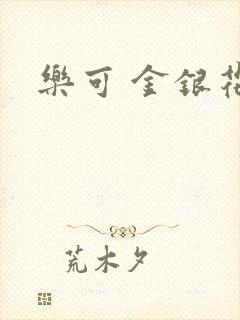 樂可 金銀花
荒木夕